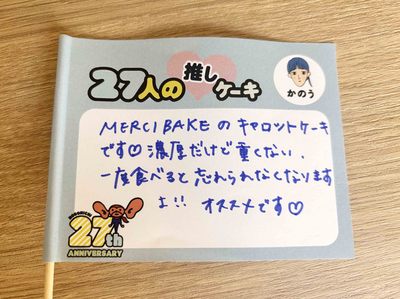 27人の推しケーキ
かのう
MERCI BAKEのキャロットケーキ
です♡濃厚だけど重くない、
一度食べると忘れられなくなります
よ!! オススメです♡
27th
ANNIVERSARY